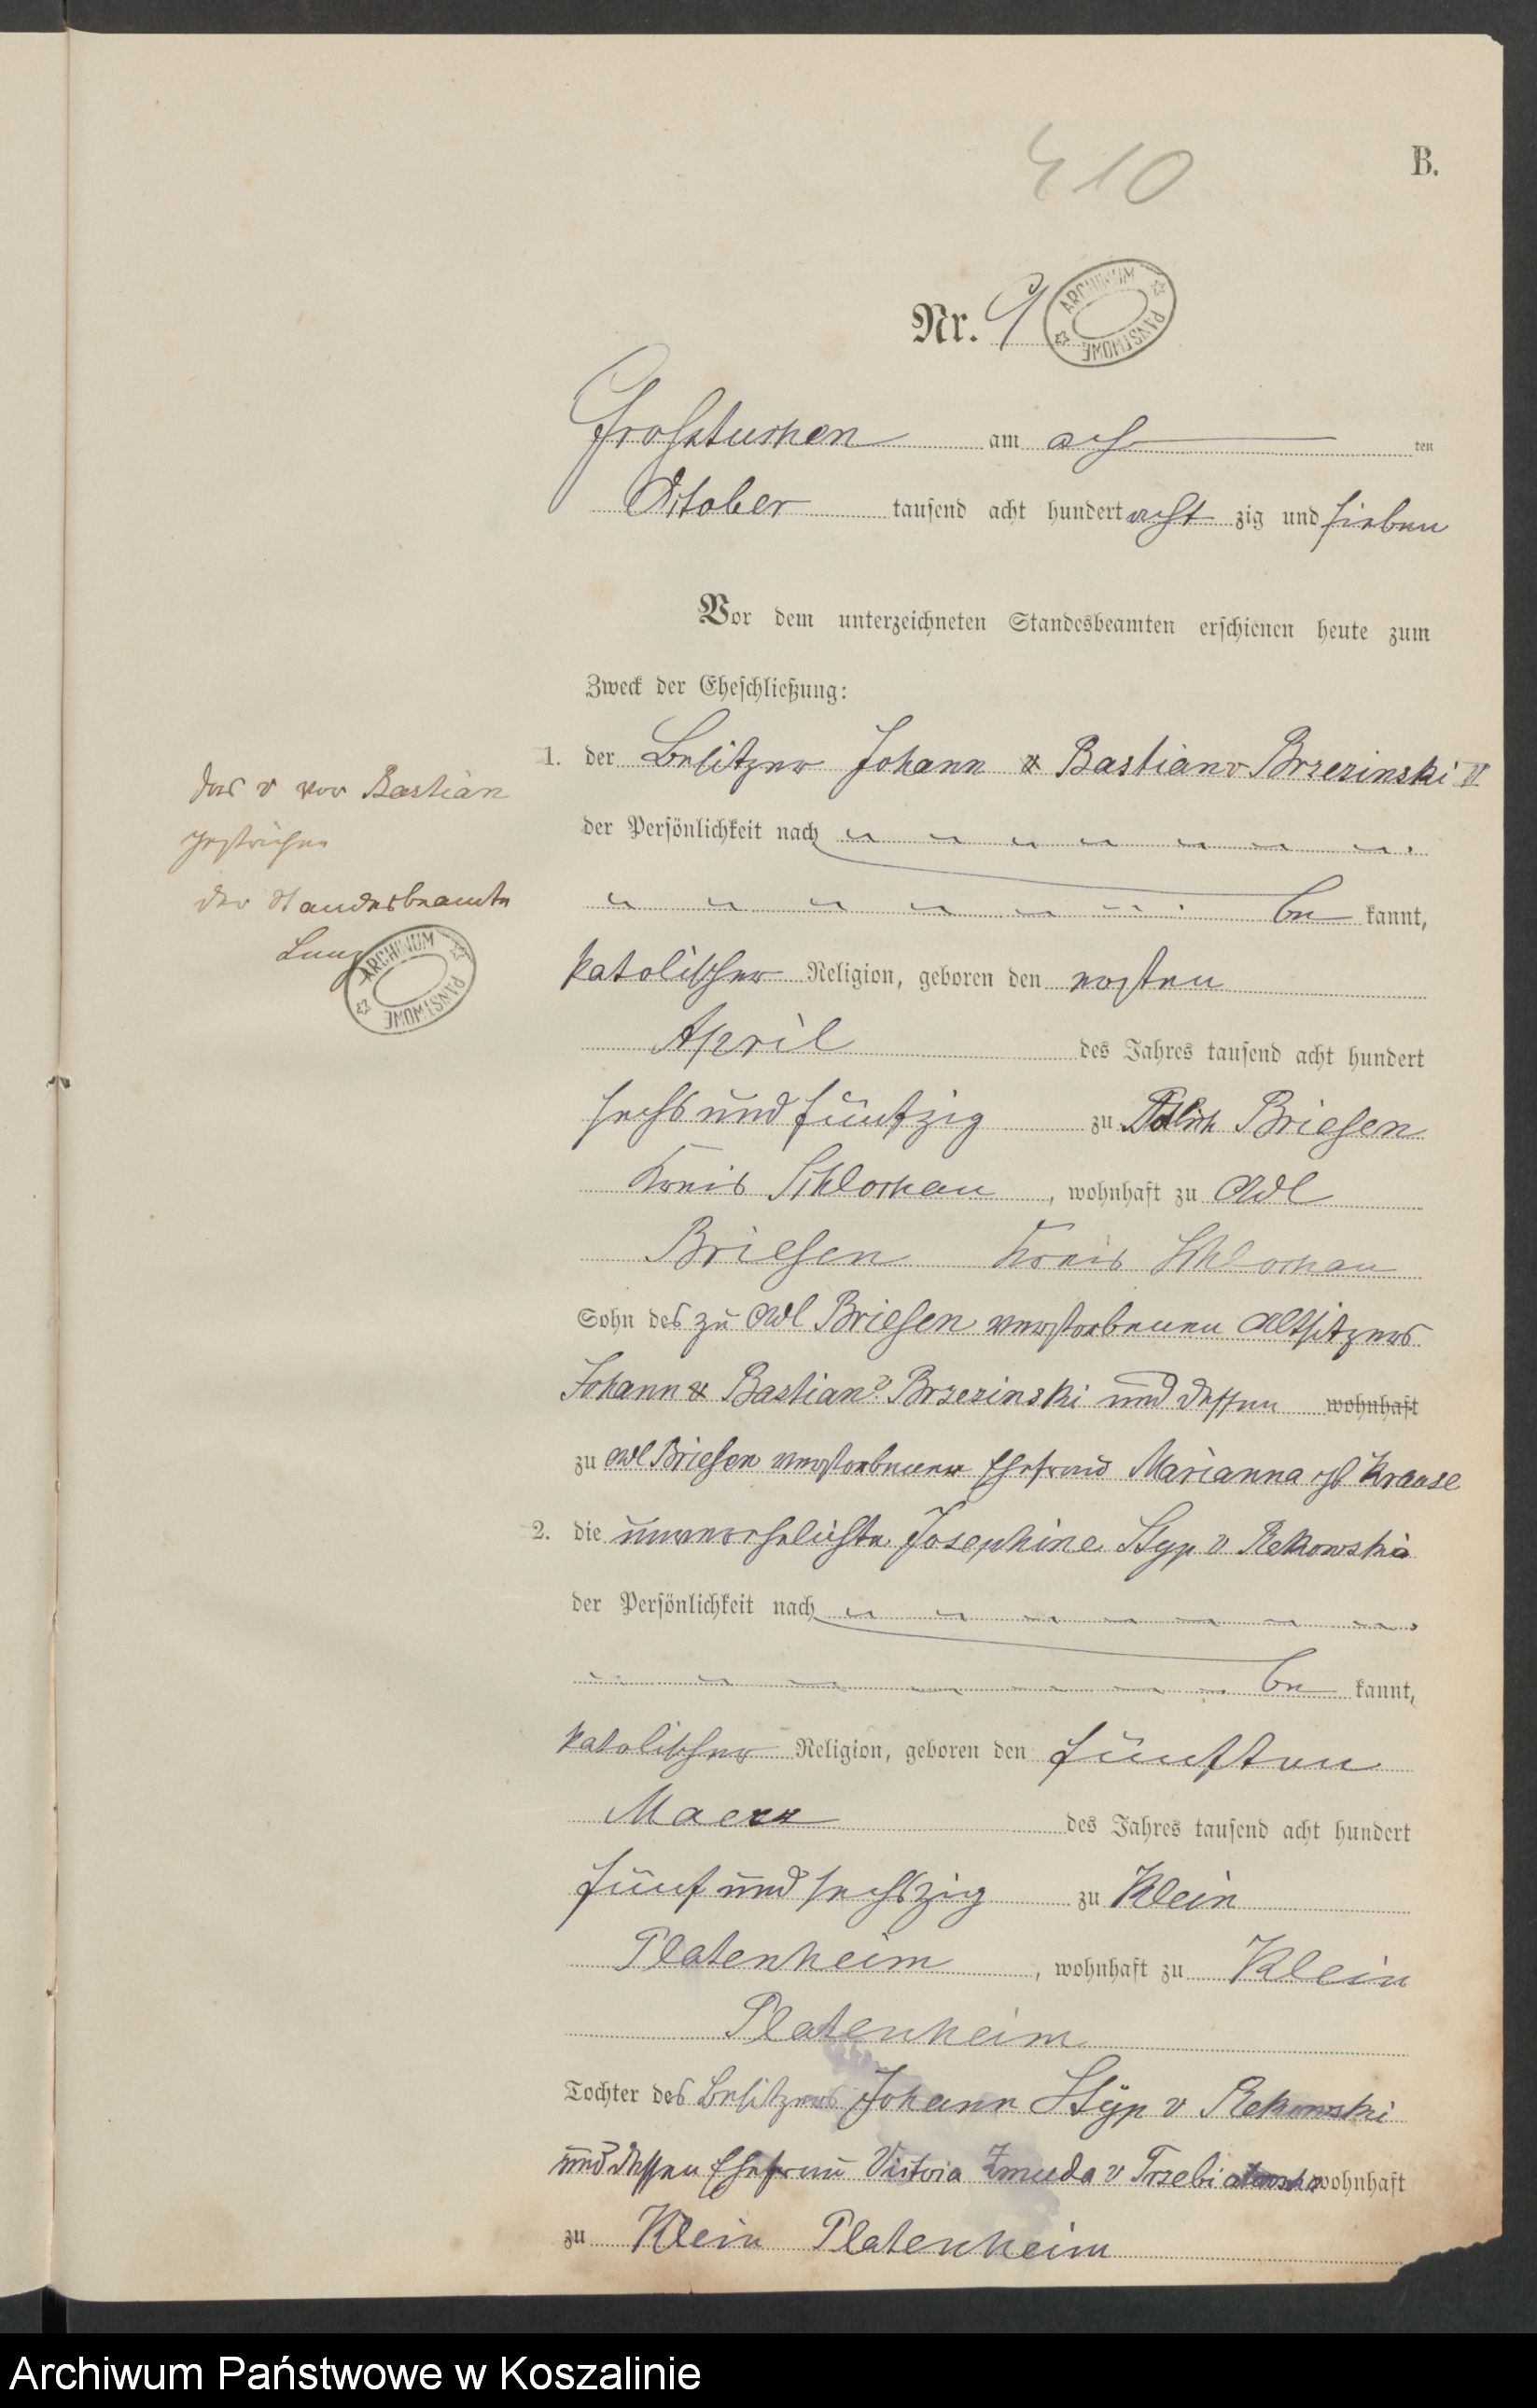 410
B.
Nr. 9
ARCHIWUM PAŃSTWOWE
Grosstuchen am ach ten
October tausend acht hundert acht zig und sieben
Vor dem unterzeichneten Standesbeamten erschienen heute zum
Zweck der Eheschließung:
1. der Besitzer Johann v Bastian v Brzezinski II
der Persönlichkeit nach
be kannt,
katolischer Religion, geboren den ersten
April des Jahres tausend acht hundert
sechs und fünfzig zu Adlich Briesen
Kreis Schlochau, wohnhaft zu Adl
Briesen Kreis Schlochau
Sohn des zu Adl Briesen verstorbenen Altsitzers
Johann v Bastian v Brzezinski und dessen wohnhaft
zu Adl Briesen verstorbenen Ehefrau Marianna gb Krause
2. die unverehelichte Josephine Styp v Rekowski
der Persönlichkeit nach
be kannt,
katolischer Religion, geboren den fünften
Maerz des Jahres tausend acht hundert
fünf und sechszig zu Klein
Platenheim, wohnhaft zu Klein
Platenheim
Tochter des Besitzers Johann Styp v Rekowski
und dessen Ehefrau Victoria Zmuda v Trzebiatowska wohnhaft
zu Klein Platenheim
das v vor Bastian
gestrichen
der Standesbeamte
ARCHIWUM PAŃSTWOWE
Archiwum Państwowe w Koszalinie